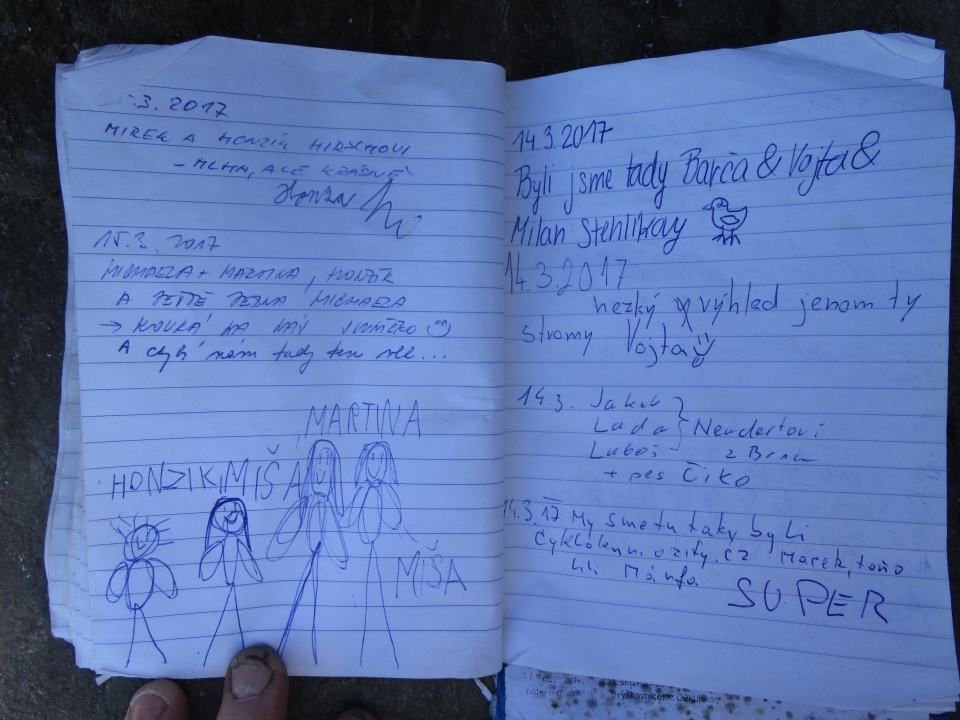 .3. 2017
MIREK A HONZÍK HIRSCHOVI
- MLHA, ALE KRÁSNÉ
Honza
15.3. 2017
MICHAELA + MARTINA, HONZÍK
A JEŠTĚ JEDNA MICHAELA
→ KOUKÁ NA NÁS
A chybí nám tady ten
MARTINA
HONZIK MIŠA
MIŠA
14.3.2017
Byli jsme tady Barča & Vojta &
Milan Stehlíkovy
14.3.2017
hezký výhled jenom ty
stromy Vojta
14.3. Jakub
Lada
Luboš z Brna
+ pes Čiko
14.3.17 My sme tu taky byli
Marek,
Manfa
SUPER
Děkuje